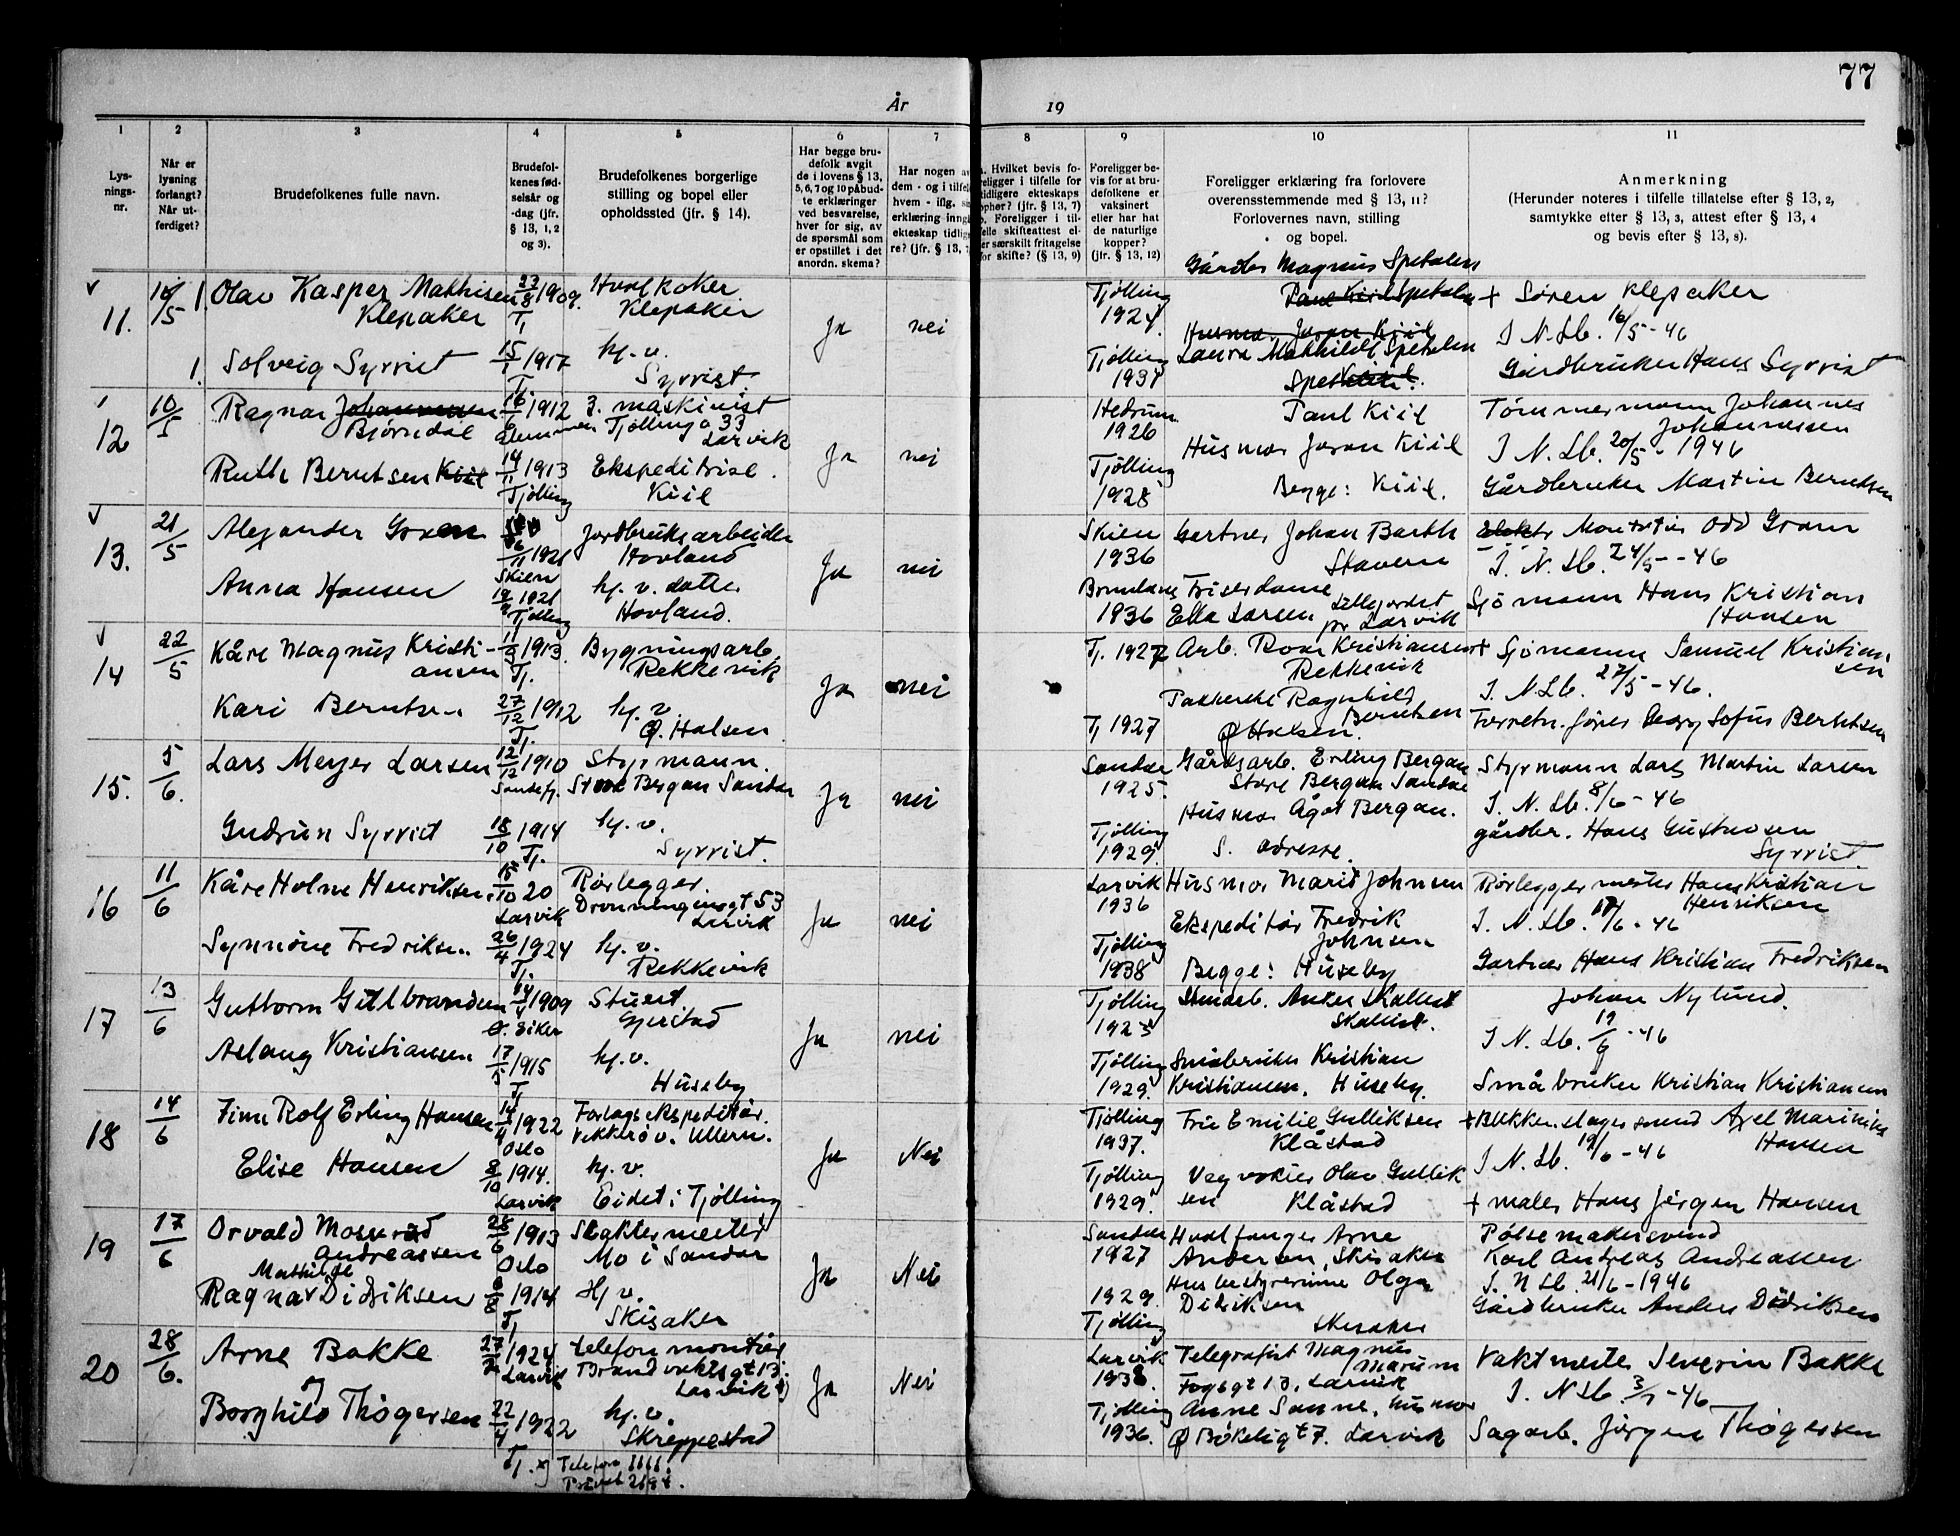 77
År
19
1
2
3
4
5
6
7
8
9
10
11
Lys-
nings-
nr.
Når er
lysning
forlangt?
Når ut-
ferdiget?
Brudefolkenes fulle navn.
Brudefol-
kenes fød-
selsår og
-dag (jfr.
§ 13, 1, 2
og 3).
Brudefolkenes borgerlige
stilling og bopel eller
opholdssted (jfr. § 14).
Har begge bru-
defolk avgit
de i lovens § 13,
5, 6, 7 og 10 påbud-
te erklæringer
ved besvarelse,
hver for sig, av
de spørsmål som
er opstillet i det
anordn. skema?
Har nogen av
dem - og i tilfelle
hvem - iflg.
erklæring inngå
ekteskap tidlige
re? (jfr. § 13, 7
Hvilket bevis fo-
religger i tilfelle for
tidligere ekteskaps
ophør? (§ 13, 7)
Foreligger i til-
felle skifteattest el-
er særskilt fritagelse
for skifte? (§ 13, 9)
Foreligger be-
vis for at bru-
defolkene er
vaksinert
eller har hat
de naturlige
kopper?
(jfr. § 13, 12)
Foreligger erklæring fra forlovere
overensstemmende med § 13, 11?
Forlovernes navn, stilling
og bopel.
Anmerkning
(Herunder noteres i tilfelle tillatelse efter § 13, 2,
samtykke efter § 13, 3, attest efter § 13, 4
og bevis efter § 13, 8).
11. Olav Kasper Mathisen
Klepaker
23/8 1909
Tj.
Hvalkoker
Klepaker
Ja nei
Tjølling
1924
Gårdbr Magnus Spetalen
Paul Kiil Spetalen
Husmor Joran Kiil
+ Søren Klepaker
I N. Lb. 16/5 - 46
1. Solveig Syrrist
15/1 1917
Tj.
hj. v.
Syrrist.
Tjølling
1931
Laura Mathilde Spetalen
Gårdbruker Hans Syrrist
12 10/5 Ragnar Johannessen
Bjørndal
16/6 1912
3. maskinist
Tjøllingg 33
Larvik
Ja nei
Hedrum
1926
Paul Kiil
Tømmermann Johannes
Johannessen
I N. Lb. 20/5 - 1946
Ruth Berntsen Kiil
14/11 1913
Tjølling
Ekspeditrise.
Kiil
Tjølling
1928
Husmor Joran Kiil
Begge: Kiil.
Gårdbruker Martin Berntsen
13. 21/5 Alexander Gram
26/11 1921
Skien
Jordbruksarbeider
Hovland
Ja nei
Skien
1936
Gartner Johan Barth
Stavern
Montør Odd Gram
I. N. Lb. 24/5 - 46
Anna Hansen
1921
Tjølling
hj. v. datter
Hovland.
Brunlanes
1936
Friserdame
Ella Larsen
pr Larvik
Sjømann Hans Kristian
Hansen
14 22/5 Kåre Magnus Kristi-
ansen
1913.
Tj.
Bygningsarb.
Rekkevik
Ja nei
Tj. 1927
Arb. Roar Kristiansen
Rekkevik
+ Sjømann Samuel Kristian
sen
I. N Lb. 27/5 - 46.
Kari Berntsen
27/12 1912
Tj.
hj. v.
Ø. Halsen
Tj 1927
Ragnhild
Berntsen
Ø Halsen.
Forretn. fører Georg Sofus Berntsen
15. 5/6. Lars Meyer Larsen
12/12 1910
Sandefj.
Styrmann.
Store Bergan Sandar
Ja nei
Sandar
1925.
Gårdsarb. Erling Bergan
Store Bergan Sandar
Styrmann Lars Martin Larsen
I. N. Lb. 8/6 - 46
Gudrun Syrrist
18/10 1914
Tj.
hj. v.
Syrrist.
Tjølling
1929
Husmor Ågot Bergan.
S. adresse.
gårdbr. Hans Gustavsen
Syrrist.
16 11/6 Kåre Holne Henriksen
15/10 20
Larvik
Rørlegger.
Dronningensgt 53
Larvik
Ja nei
Larvik
1936
Husmor Marie Johnsen
Rørleggermester Hans Kristian
Henriksen
I. N. Lb. 17/6 - 46
Synnøve Fredriksen.
26/4 1924
Tj.
hj. v.
Rekkevik
Tjølling
1938
Ekspeditør Fredrik
Johnsen
Begge: Huseby
Gartner Hans Kristian Fredriksen
17 13/6 Guttorm Gulbrandsen
1909
Ø. Eiker
Stuert.
Gjerstad
Ja nei
Tjølling
1925
Anker Skallist
Skallist.
Johan Nylund.
I N. Lb. 19/6 - 46
Aslaug Kristiansen
17/5 1915
Tj
hj. v.
Huseby
Tjølling
1929
Småbruker Kristian
Kristiansen. Huseby.
Småbruker Kristian Kristiansen
18 14/6 Finn Rolf Erling Hansen
14/4 1922
Oslo
Forlagsekspeditør.
Vækkerø v. Ullern.
Ja Nei
Tjølling
1937.
Fru Emilie Gulliksen
Klåstad
+ Blikkenslagersvend Axel Marinius
Hansen
I N. Lb. 19/6 - 46
Elise Hansen
8/10 1914.
Larvik
hj. v.
Eidet i Tjølling
Tjølling
1929.
Vegvokter Olav Gullik
sen Klåstad
+ maler Hans Jørgen Hansen
19 17/6 Orvald Mosserud
Andreassen
28/6 1913
Oslo
Slaktermester
Mo i Sandar
Ja Nei
Sandar
1927
Hvalfanger Arne
Andersen, Skisaker
Pølsemakersvend
Karl Andreas Andreassen
I. N Lb. 21/6 - 1946
Mathilde
Ragna Didriksen
8/8 1914
Tj
Hj v.
Skisaker
1929.
Tjølling
Husbestyrerinne Olga
Didriksen
Skisaker
Gårdbruker Anders Didriksen
20 28/6. Arne Bakke
1924
Larvik
telefonmontør
Brandvaktsgt 13.
Larvik x)
Ja Nei
Larvik
1938.
Telegrafist Magnus
Marum
13, Larvik
Vaktmester Severin Bakke
I. N Lb. 3/7 - 46
Borghild Thøgersen
22/4 1922
Tj.
hj. v.
Skreppestad
Tjølling
1936.
Anne Sanne, husmor
Ø Bøkeligt 7. Larvik
Sagarb. Jørgen Thøgersen
x) Telefon 1111.
Privat